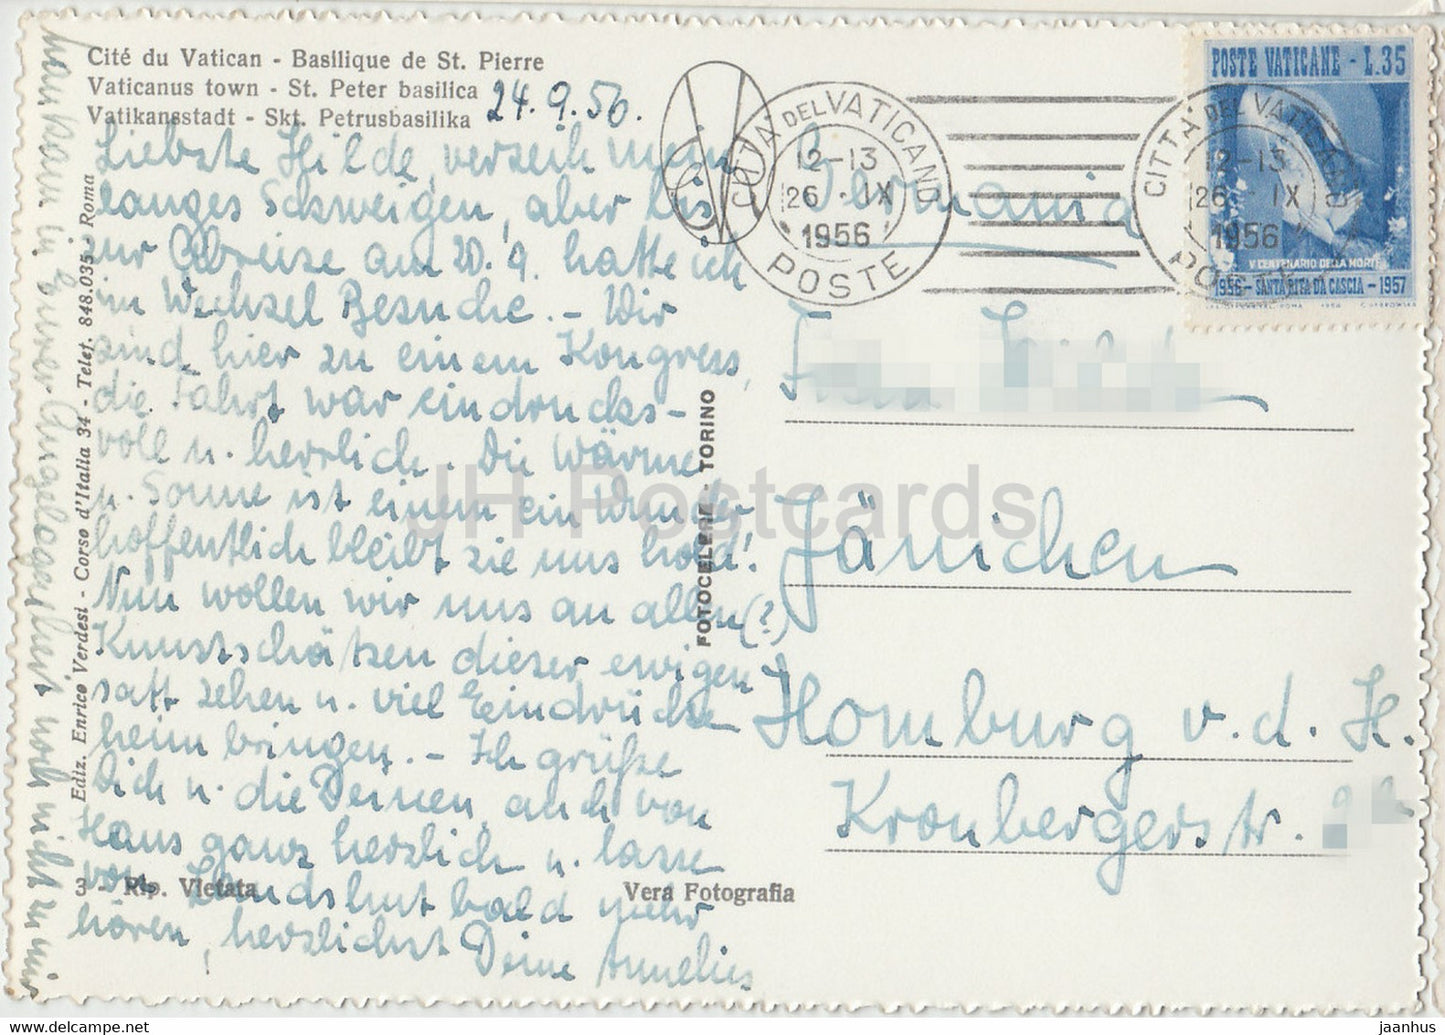 Cité du Vatican - Basilique de St. Pierre
Vaticanus town - St. Peter basilica
Vatikansstadt - Skt. Petrusbasilika
24.9.56.
Liebste Hilde, verzeih mein
langes Schweigen, aber bis
zur Abreise am 20.9. hatte ich
im Wechsel Besuche. - Wir
sind hier zu einem Kongress,
die Fahrt war eindrucks-
voll u. herrlich. Die Wärme
u. Sonne ist einem ein Wunder
hoffentlich bleibt sie uns hold!
Nun wollen wir uns an allen (?)
Kunstschätzen dieser ewigen
satt sehen u. viel Eindrücke
heim bringen. - Ich grüße
Dich u. die Deinen, auch von
Hans ganz herzlich u. lasse
von Landshut bald mehr
hören, herzlichst Deine Annelies
kam in Eurer Angelegenheit noch nicht zu mir
Ediz. Enrico Verdesi - Corso d'Italia 34 - Telef. 848.035 - Roma
3 - Rip. Vietata
Vera Fotografia
FOTOCELERE - TORINO
JH Postcards
CITTÀ DEL VATICANO
12-13
26 · IX
1956
POSTE
CITTÀ DEL VATICANO
12-13
26 · IX
1956
POSTE
POSTE VATICANE - L.35
V CENTENARIO DELLA MORTE
1956 - SANTA RITA DA CASCIA - 1957
Germania
Jänichen
Homburg v. d. H.
Kronbergerstr.
jaanhus
www.delcampe.net